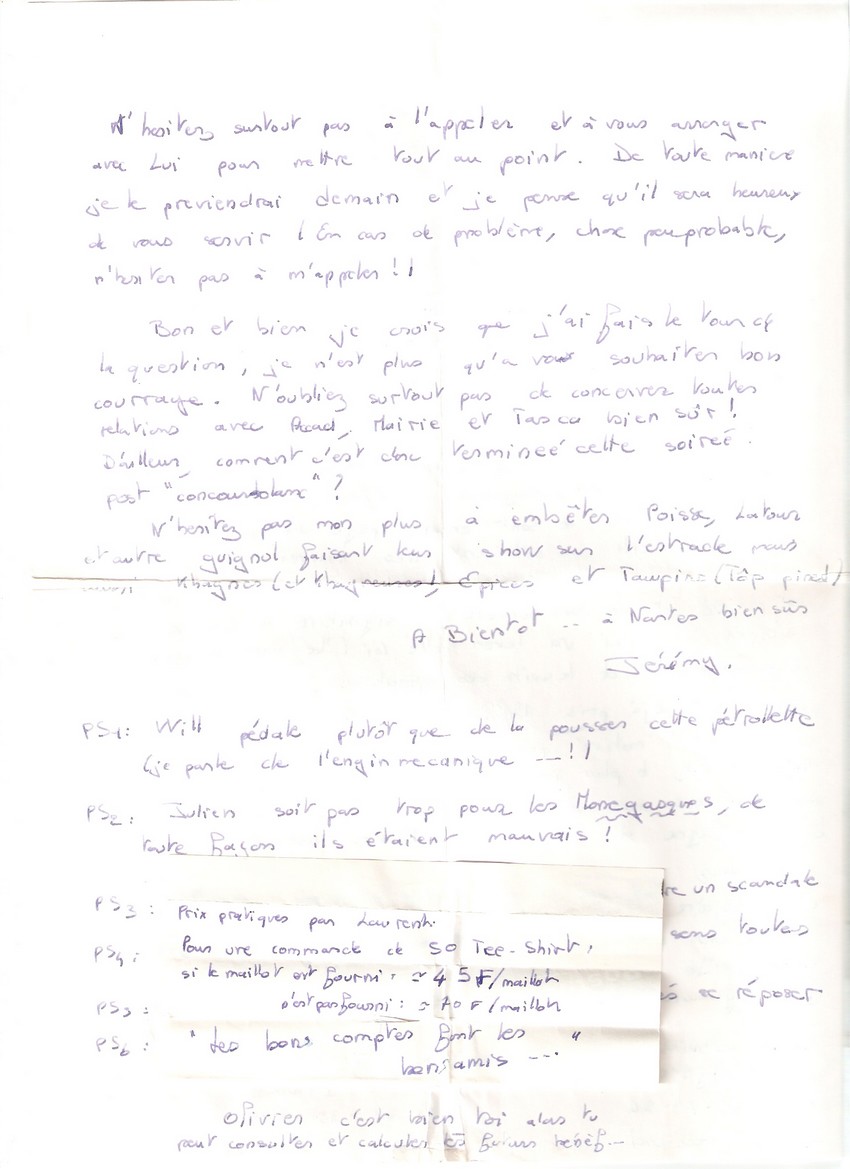 N'hesitez surtout pas à l'appeler et à vous arranger
avec Lui pour mettre tout au point. De toute maniere
je le previendrai demain et je pense qu'il sera heureux
de vous servir ! En cas de problème, chose peu probable,
n'hesiter pas à m'appeler !!
Bon et bien je crois que j'ai fais le tour de
la question, je n'est plus qu'a vous souhaiter bon
courrage. N'oubliez surtout pas de concervez toutes
relations avec Mairie et Tasca bien sûr !
D'ailleur, comment c'est donc termineé cette soireé
post " " ?
N'hesitez pas mon plus à embêter Poisse, Latour
et autre guignol faisant leur show sur l'estrade mais
aussi Khagnes (et Khagneuses), Epices et Taupins (Tôp pires!)
A Bientot -- à Nantes bien sûr
Jérémy.
PS1: Will pédale plutôt que de la pousser cette pétrollette
(je parle de l'engin mecanique ---!!
PS2: Julien soit pas trop pour les Monegasques, de
toute façon ils étaient mauvais !
PS3: un scandale
Prix pratiqués par Laurent.
PS4: sans toutes
Pour une commande de 50 Tee-Shirt,
si le maillot est fourni : ≃ 45 F/maillot
PS5: se réposer
n'est pas fourni : ≃ 70 F/maillot
PS6: " Les bons comptes font les
bons amis --- "
Olivier c'est bien toi alors tu
peut consulter et calculer les futurs bénéf---